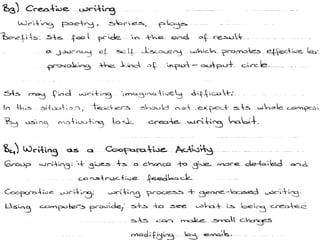 B3) Creative writing
Writing poetry, stories, plays
Benefits: Sts feel pride in the end of result.
a journey of self discovery which promotes effective lear
provoking the kind of input-output circle.
Sts may find writing imaginatively difficult.
In this situation, teachers should not expect sts whole compos
By using motivating task create writing habit.
B4) Writing as a Cooperative Activity
Group writing: it gives ts a chance to give more detailed and
constructive feedback
Cooperative writing: writing process + genre-based writing.
Using computers provide; sts to see what is being created
sts can make small changes
modifying by emails.